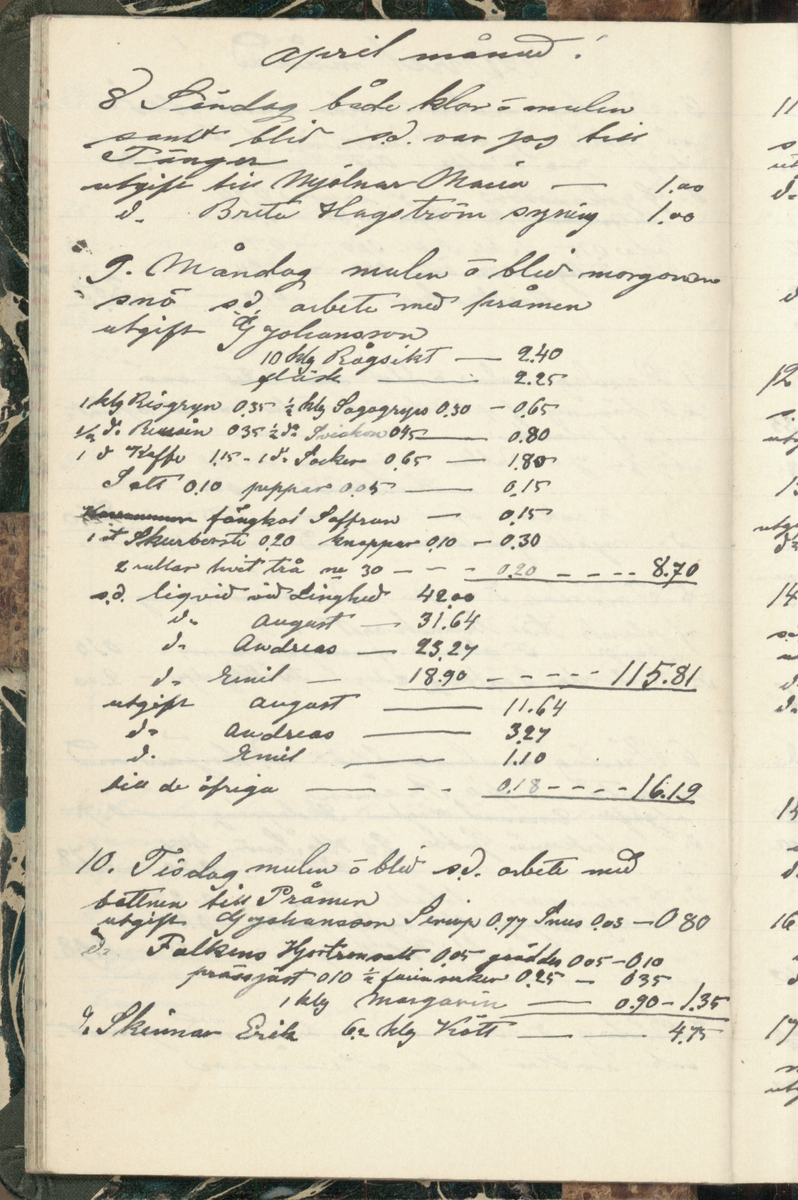 april månad!
8 Söndag både klar o mulen
samt blid s.d. var jag till
Tänger
utgift till Mjölnar Maria — 1.00
d. Brita Hagström syning 1.00
9. Måndag mulen o blid morgonen
snö s.d. arbete med pråmen
utgift G Johansson
10 klg Rågsikt — 2.40
fläsk — 2.25
1 klg Risgryn 0.35 ½ klg Sagogryn 0.30 - 0.65
½ d. Russin 035 ½ d. Sviskon 045 — 0.80
1 d Kaffe 1.15 - 1 d. Socker 0.65 — 1.80
Salt 0.10 peppar 0.05 — 0.15
fängkol Saffran — 0.15
1 st Skurborste 0.20 knappar 0.10 - 0.30
2 rullar hvit trå no 30 - - - 0.20 - - - - 8.70
s.d. liqvid vid Linghed 42.00
d. August — 31.64
d. Andreas — 23.27
d. Emil — 18.90 - - - - - 115.81
utgift August — 11.64
d. Andreas — 3.27
d. Emil — 1.10
till de öfriga — - - 0.18 - - - - 16.19
10. Tisdag mulen o blid s.d. arbete med
bottnen till Pråmen
utgift G Johansson Sirap 0.77 Snus 0.03 - 0 80
d. Falkens Hjortronsalt 0.05 grädde 005 - 010
prässjäst 010 ½ farinsocker 0.25 - 035
1 klg Margarin — 0.90 - 1.35
d. Skinnar Erik 6.2 klg Kött — 4.75
11
12
13
14
15
16
17